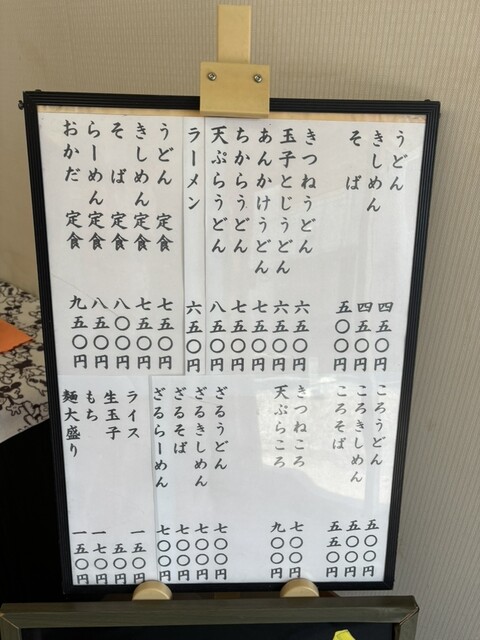 うどん 四五〇円
きしめん 四五〇円
そば 五〇〇円
きつねうどん 六五〇円
玉子とじうどん 六五〇円
あんかけうどん 七五〇円
ちからうどん 七五〇円
天ぷらうどん 八五〇円
ラーメン 六五〇円
うどん 定食 七五〇円
きしめん 定食 七五〇円
そば 定食 八〇〇円
らーめん 定食 八五〇円
おかだ 定食 九五〇円
ころうどん 五〇〇円
ころきしめん 五〇〇円
ころそば 五五〇円
きつねころ 七〇〇円
天ぷらころ 九〇〇円
ざるうどん 七〇〇円
ざるきしめん 七〇〇円
ざるそば 七〇〇円
ざるらーめん 七〇〇円
ライス 一五〇円
生玉子 五〇円
もち 一七〇円
麺大盛り 一五〇円